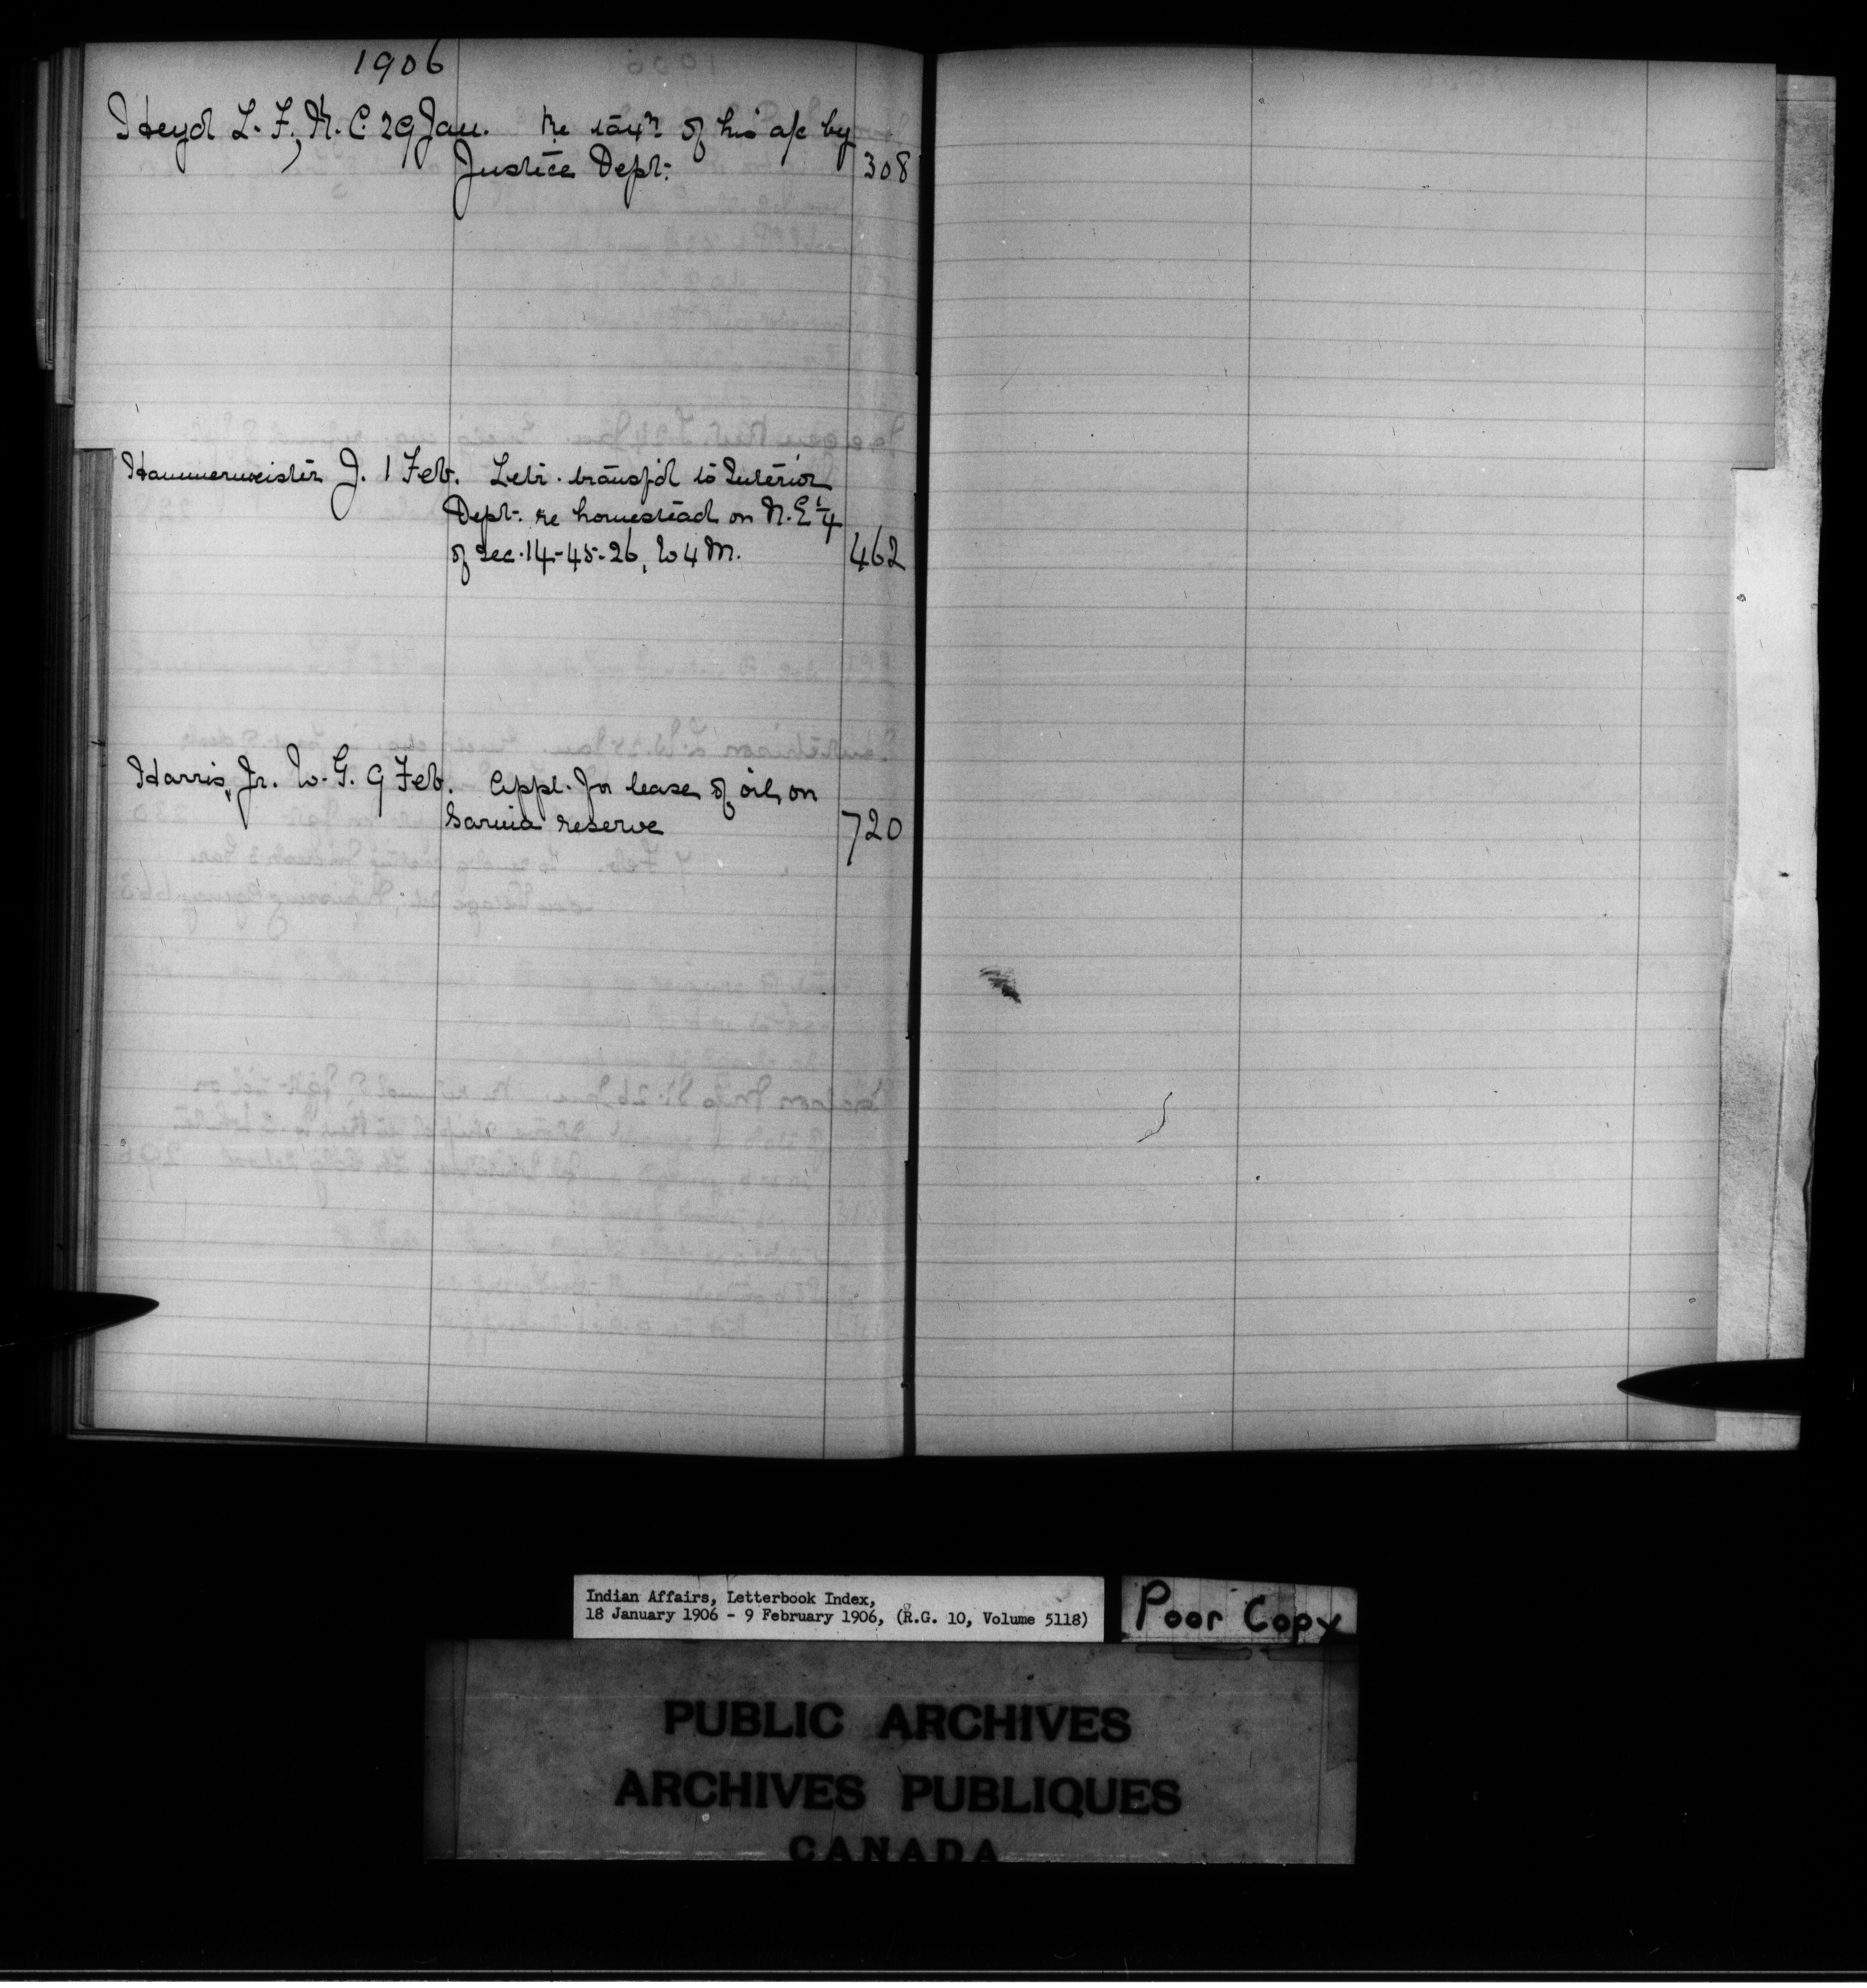 1906
Heyd L. F., K. C. 29 Jan. Re tax'n of his a/c by
Justice Dept. 308
Hammermeister J. 1 Feb. Letr. transf'd to Interior
Dept. re homestead on N.E ¼
of sec. 14-45-26, W 4 M. 462
Harris, Jr. W. G. 9 Feb. Appl. for lease of oil on
Sarnia reserve 720
Indian Affairs, Letterbook Index,
18 January 1906 - 9 February 1906, (R.G. 10, Volume 5118)
Poor Copy
PUBLIC ARCHIVES
ARCHIVES PUBLIQUES
CANADA